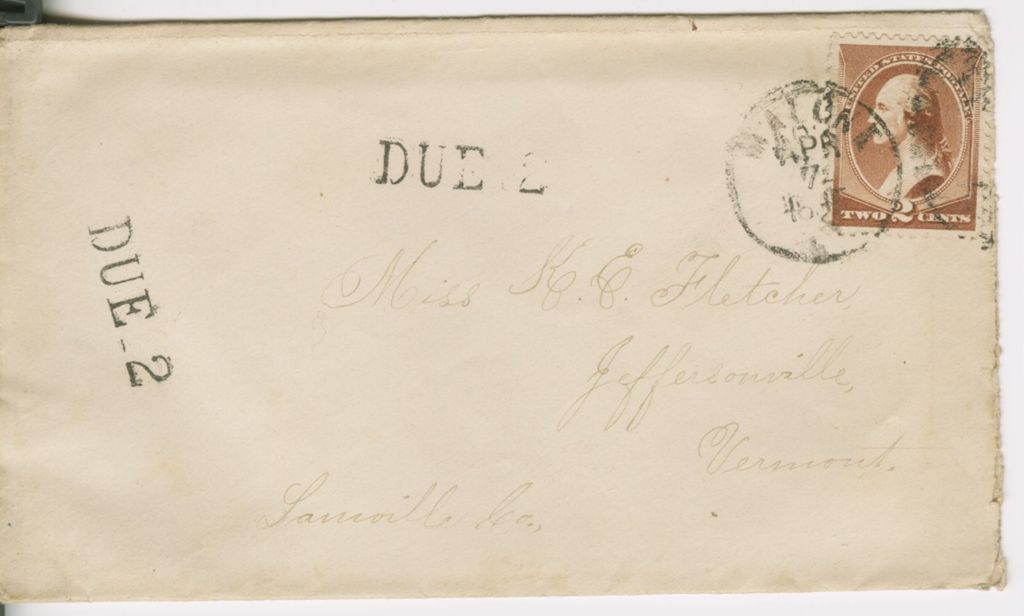 DUE 2
DUE 2
MALONE
APR
UNITED STATES POSTAGE
TWO 2 CENTS
Miss K. E. Fletcher,
Jeffersonville,
Vermont.
Lamoille Co.,